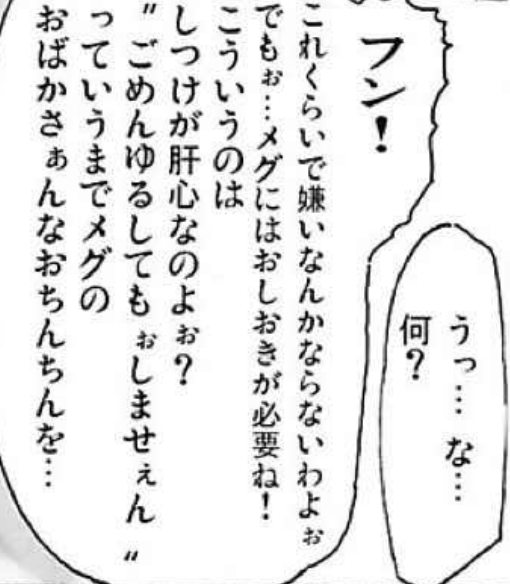 うっ… な…
何?
フン!
これくらいで嫌いなんかならないわよぉ
でもぉ…メグにはおしおきが必要ね!
こういうのは
しつけが肝心なのよぉ?
"ごめんゆるしてもぉしませぇん"
っていうまでメグの
おばかさぁんなおちんちんを…